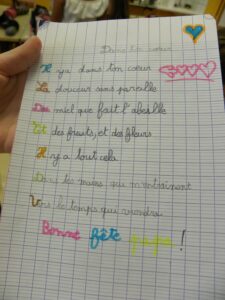 Dans ton cœur
Il y a dans ton cœur
La douceur sans pareille
Du miel que fait l'abeille
Et des fruits, et des fleurs
Il y a tout cela
Dans les mains qui m'entraînent
Vers le temps qui viendra
Bonne fête papa !